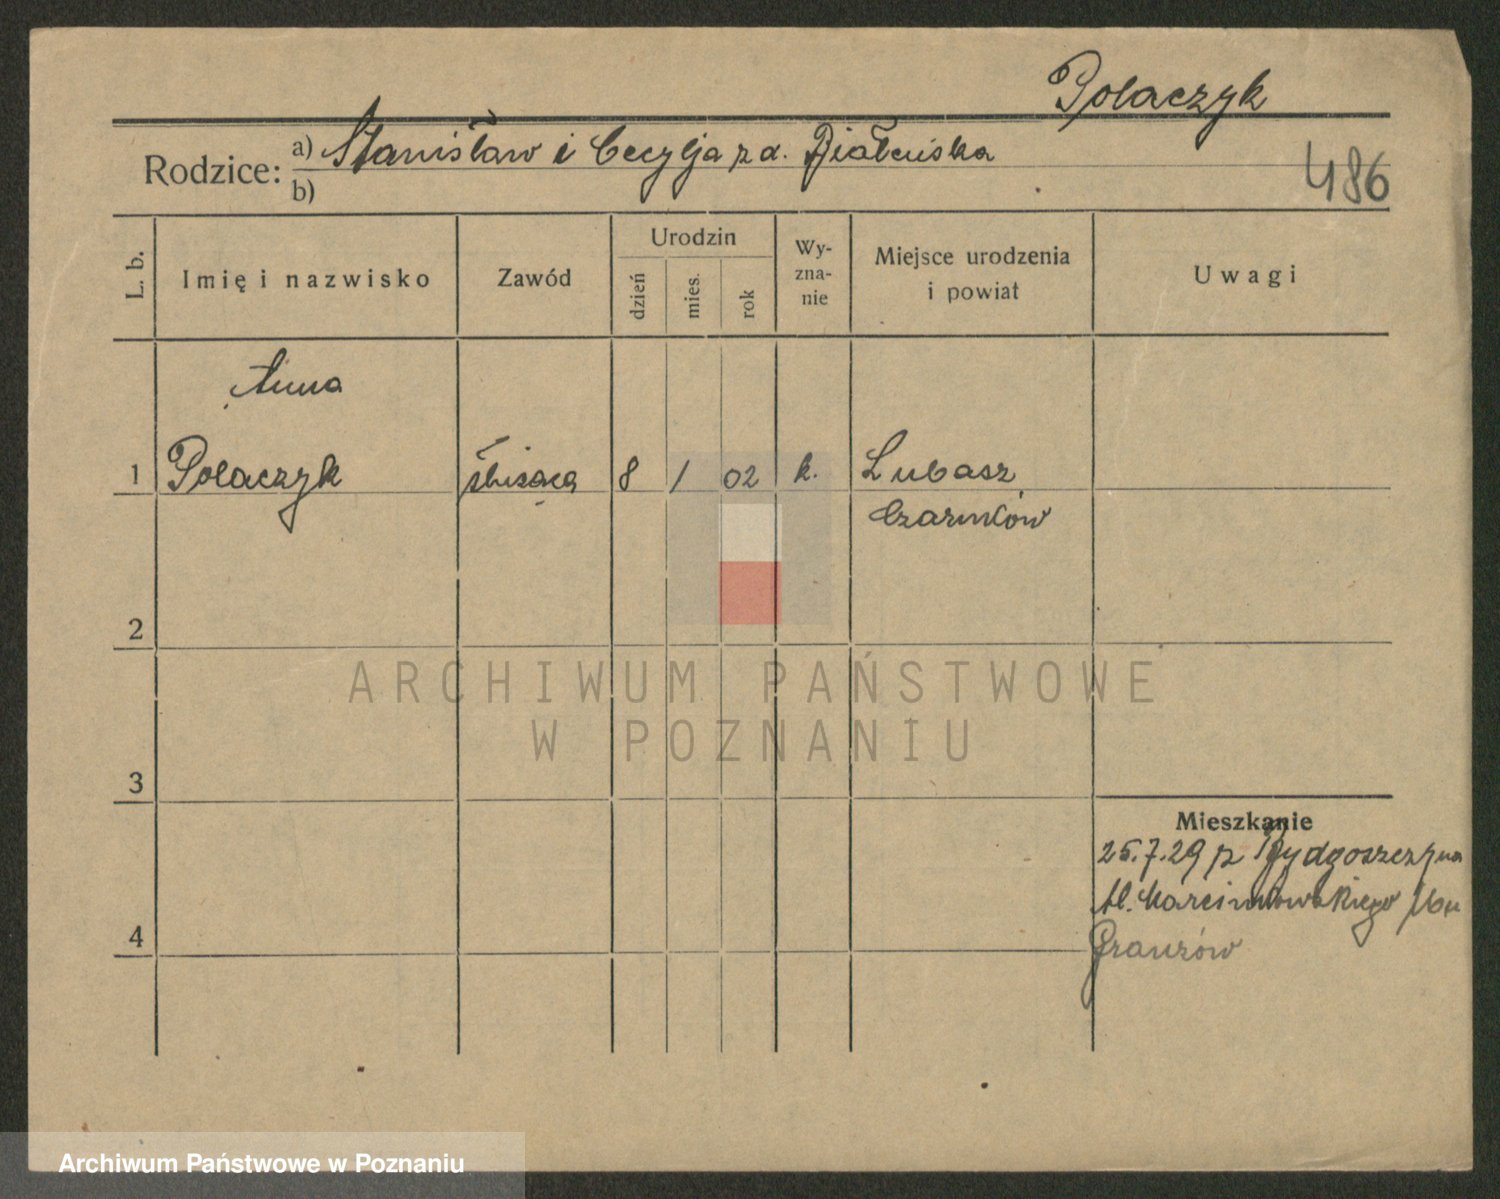 Polaczyk
Rodzice: a) Stanisław i Cecylja z d.
b)
486
L. b.
Imię i nazwisko
Zawód
Urodzin
dzień
mies.
rok
Wy-
zna-
nie
Miejsce urodzenia
i powiat
Uwagi
Anna
1 Polaczyk 8 1 02 k. Lubasz
Czarnków
2
3
4
Mieszkanie
25.7.29 z
Al. Marcinkowskiego
ARCHIWUM PAŃSTWOWE
W POZNANIU
Archiwum Państwowe w Poznaniu